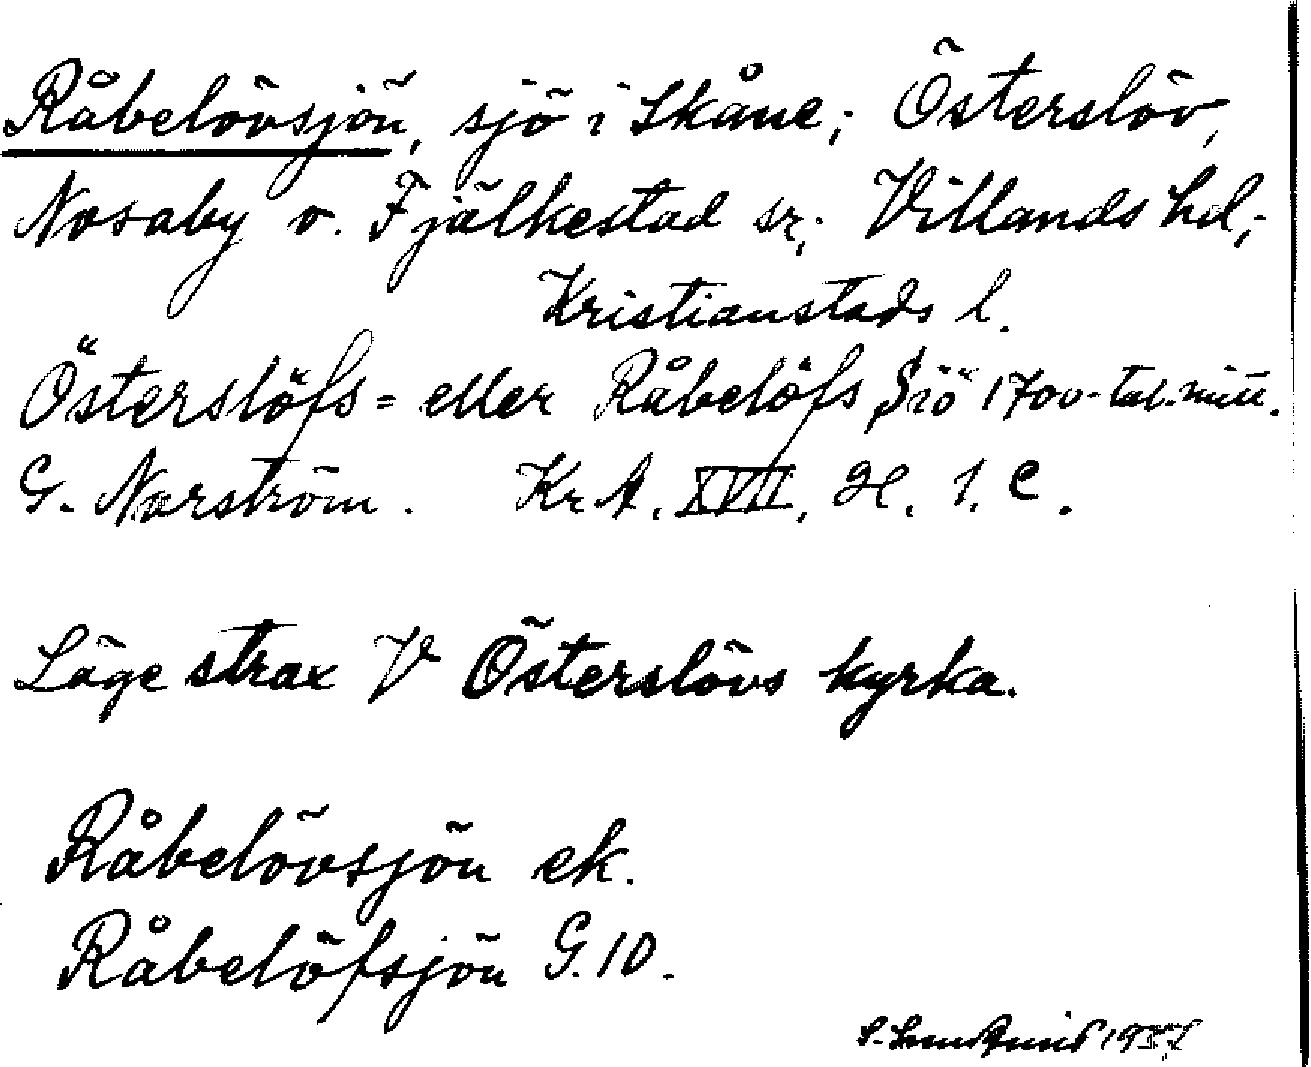 Råbelövsjön, sjö i Skåne; Österslöv,
Nosaby o. Fjälkestad sr; Villands hd;
Kristianstads l.
Österslöfs= eller Råbelöfs Siö 1700-tal. mitt.
G. Norström. Kr A. XVII. H. 1. C.
Läge strax V Österslövs kyrka.
Råbelövsjön ek.
Råbelöfsjön G. 10.
S.